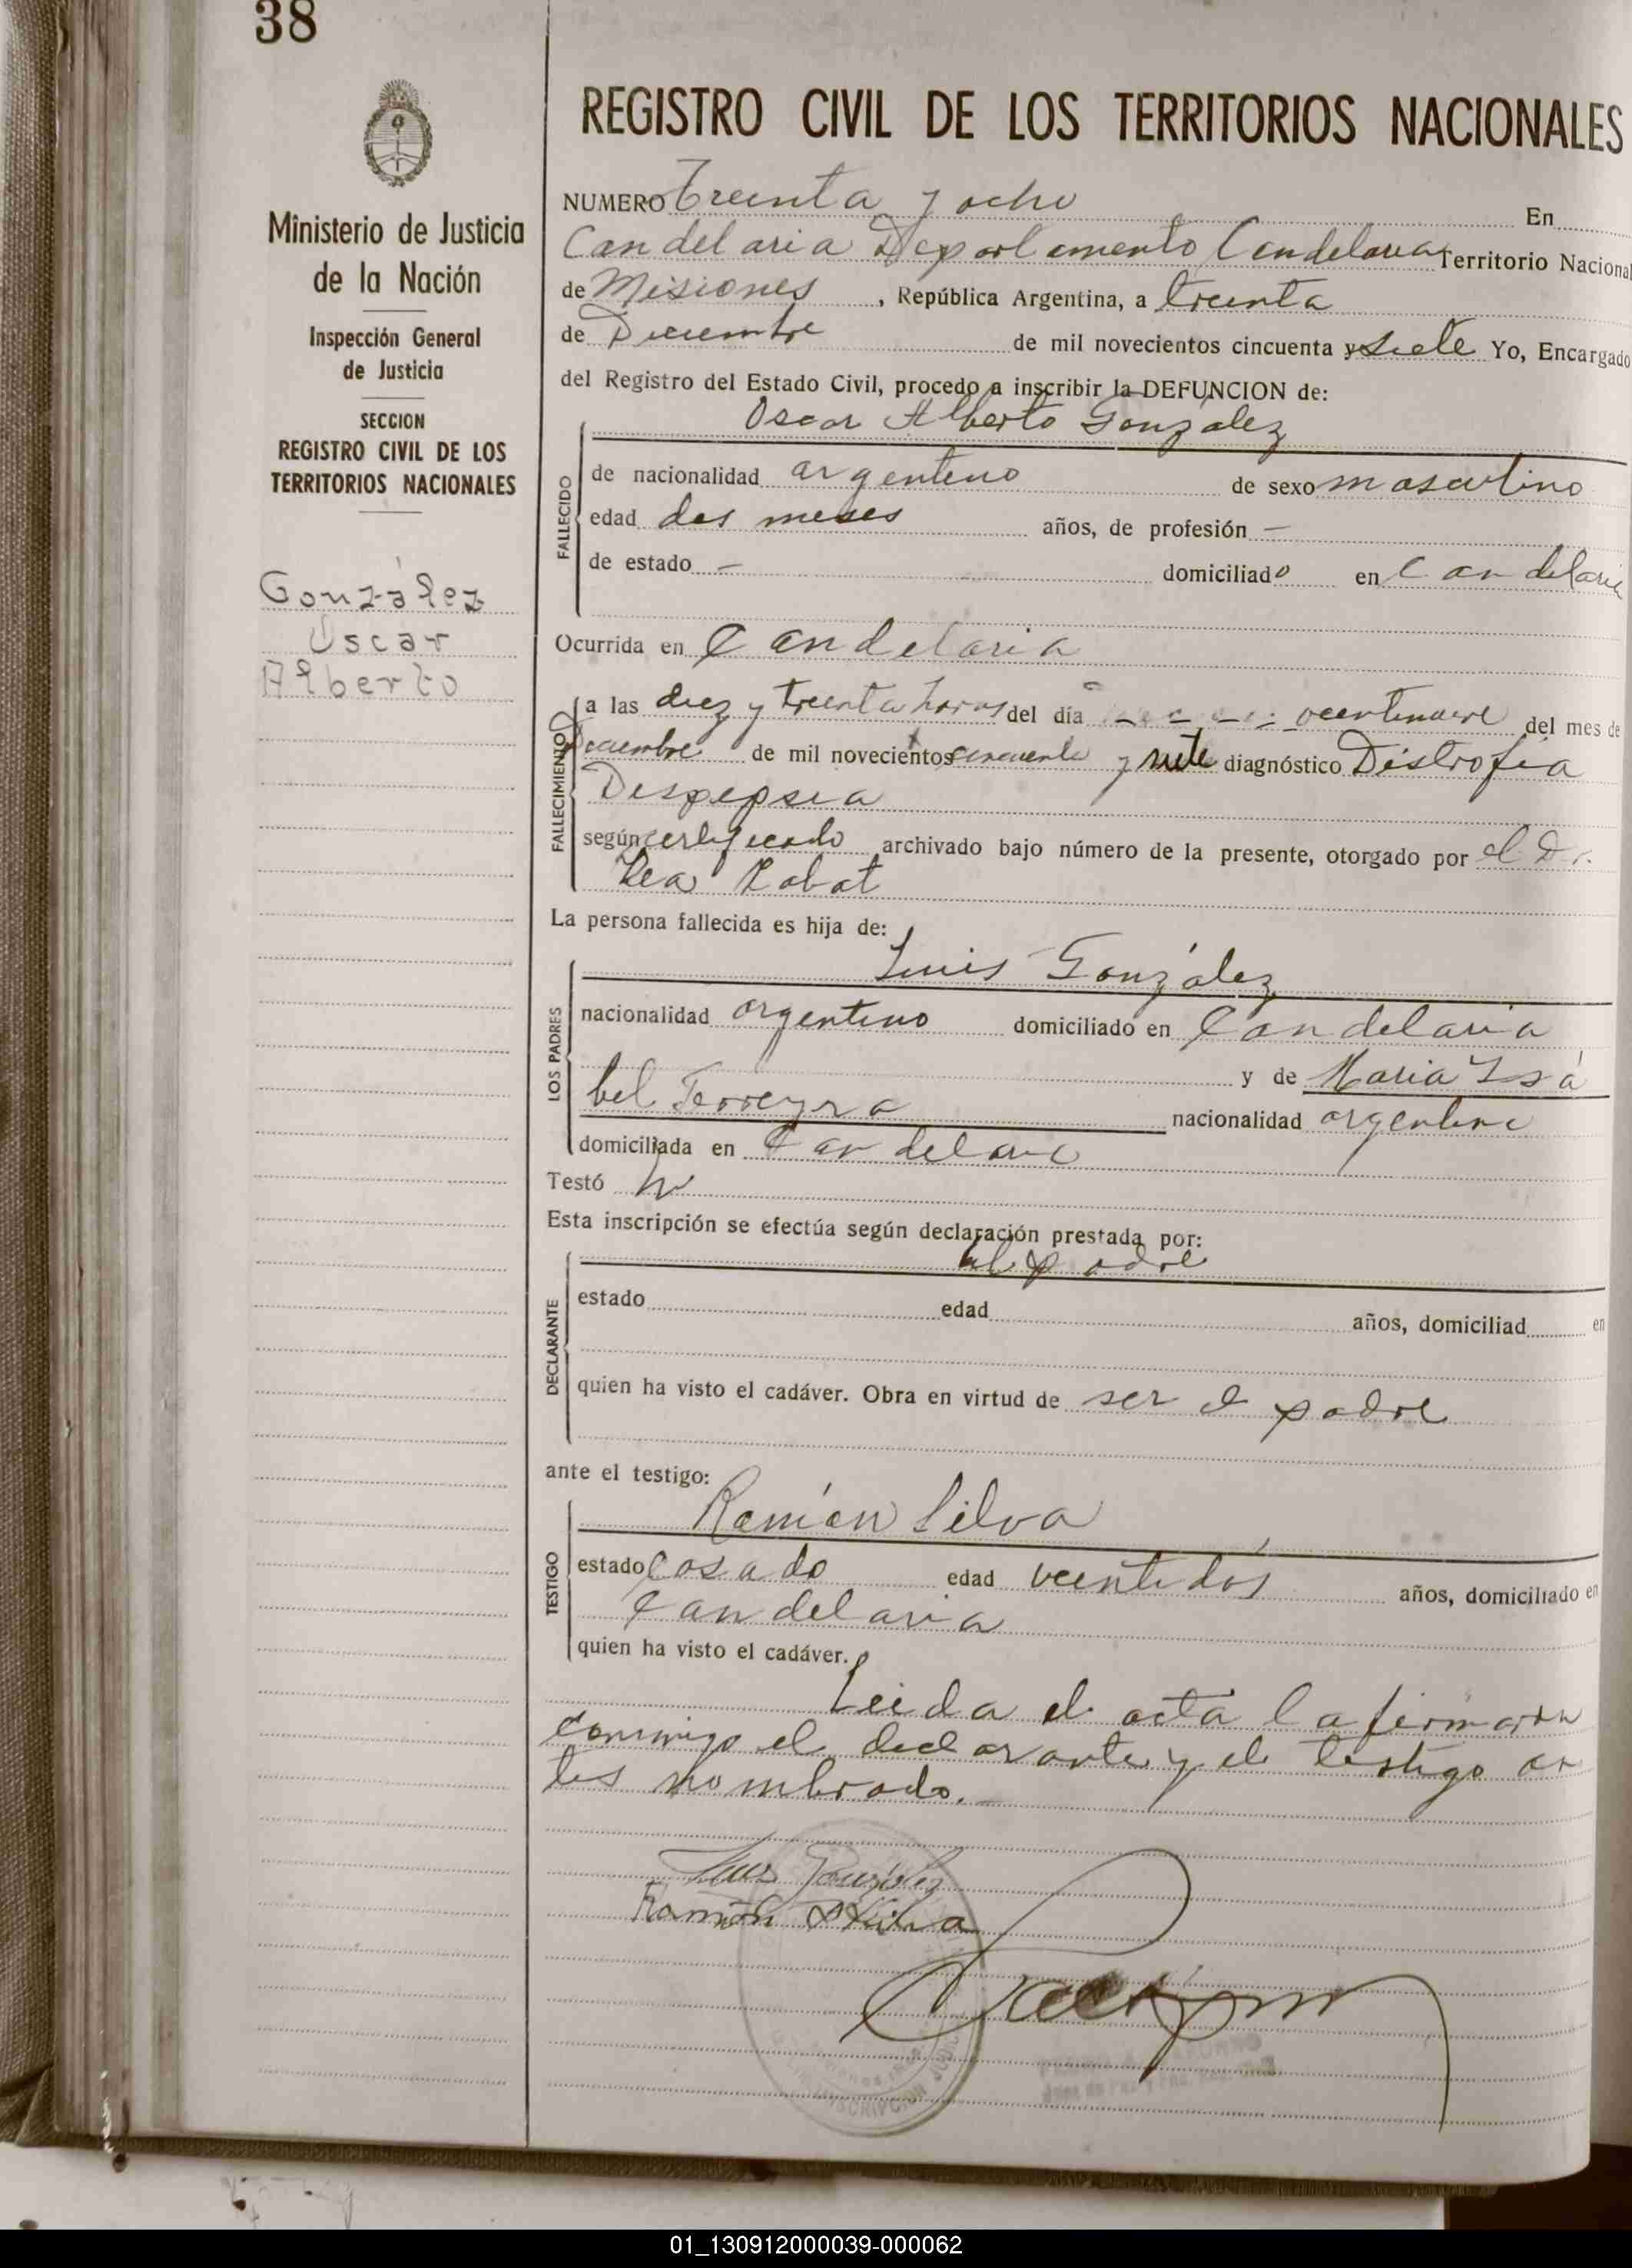 38
REGISTRO CIVIL DE LOS TERRITORIOS NACIONALES
Ministerio de Justicia
de la Nación
Inspección General
de Justicia
SECCION
REGISTRO CIVIL DE LOS
TERRITORIOS NACIONALES
González
Oscar
Alberto
NUMERO Treinta y ocho En
Candelaria Departamento Candelaria Territorio Nacional
de Misiones, República Argentina, a treinta
de Diciembre de mil novecientos cincuenta y siete Yo, Encargado
del Registro del Estado Civil, procedo a inscribir la DEFUNCION de:
Oscar Alberto González
FALLECIDO
de nacionalidad argentino de sexo masculino
edad dos meses años, de profesión —
de estado — domiciliado en Candelaria
Ocurrida en Candelaria
FALLECIMIENTO
a las diez y treinta horas del día veintinueve del mes de
Diciembre de mil novecientos cincuenta y siete diagnóstico Distrofia
Dispepsia
según certificado archivado bajo número de la presente, otorgado por el Dr.
La persona fallecida es hija de:
Luis González
LOS PADRES
nacionalidad argentino domiciliado en Candelaria
y de Maria Isa
bel Ferreyra nacionalidad argentina
domiciliada en Candelaria
Testó
Esta inscripción se efectúa según declaración prestada por:
el padre
DECLARANTE
estado edad años, domiciliad en
quien ha visto el cadáver. Obra en virtud de ser el padre
ante el testigo:
Ramón Silva
TESTIGO
estado casado edad veintidós años, domiciliado en
Candelaria
quien ha visto el cadáver.
Leida el acta la firmaron
conmigo el declarante y el testigo an
tes nombrado.—
Luis González
Ramón Silva
01_130912000039-000062